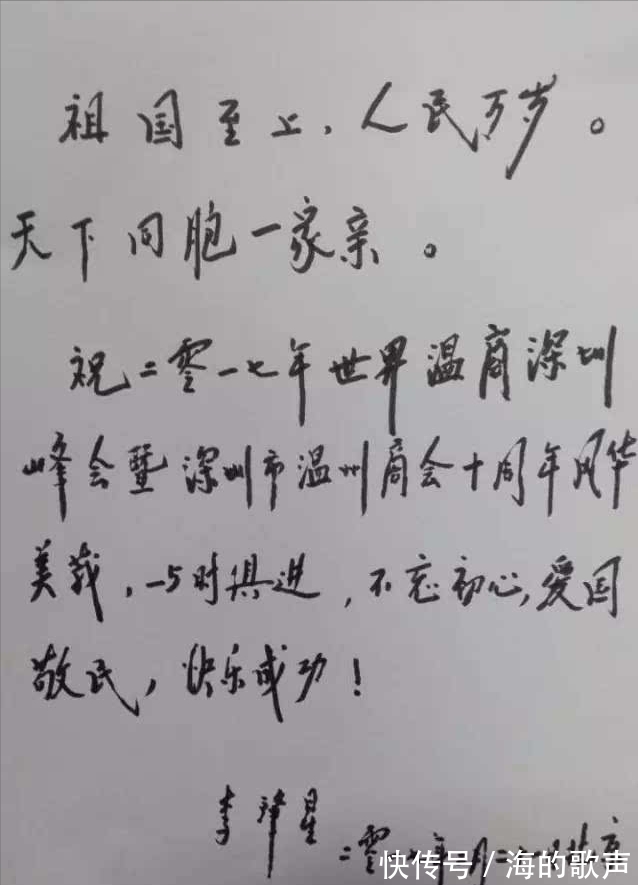 祖国至上，人民万岁。
天下同胞一家亲。
祝二零一七年世界温商深圳
峰会暨深圳市温州商会十周年风华
美哉，与时俱进，不忘初心，爱国
敬民，快乐成功！
李肇星
二零一七年
快传号／海的歌声